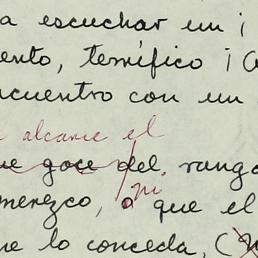 a escuchar un ¡
ento, terrífico ¡
ncuentro con un
alcance el
ue goce del rango
ni
merezco, o que el
me lo conceda, (